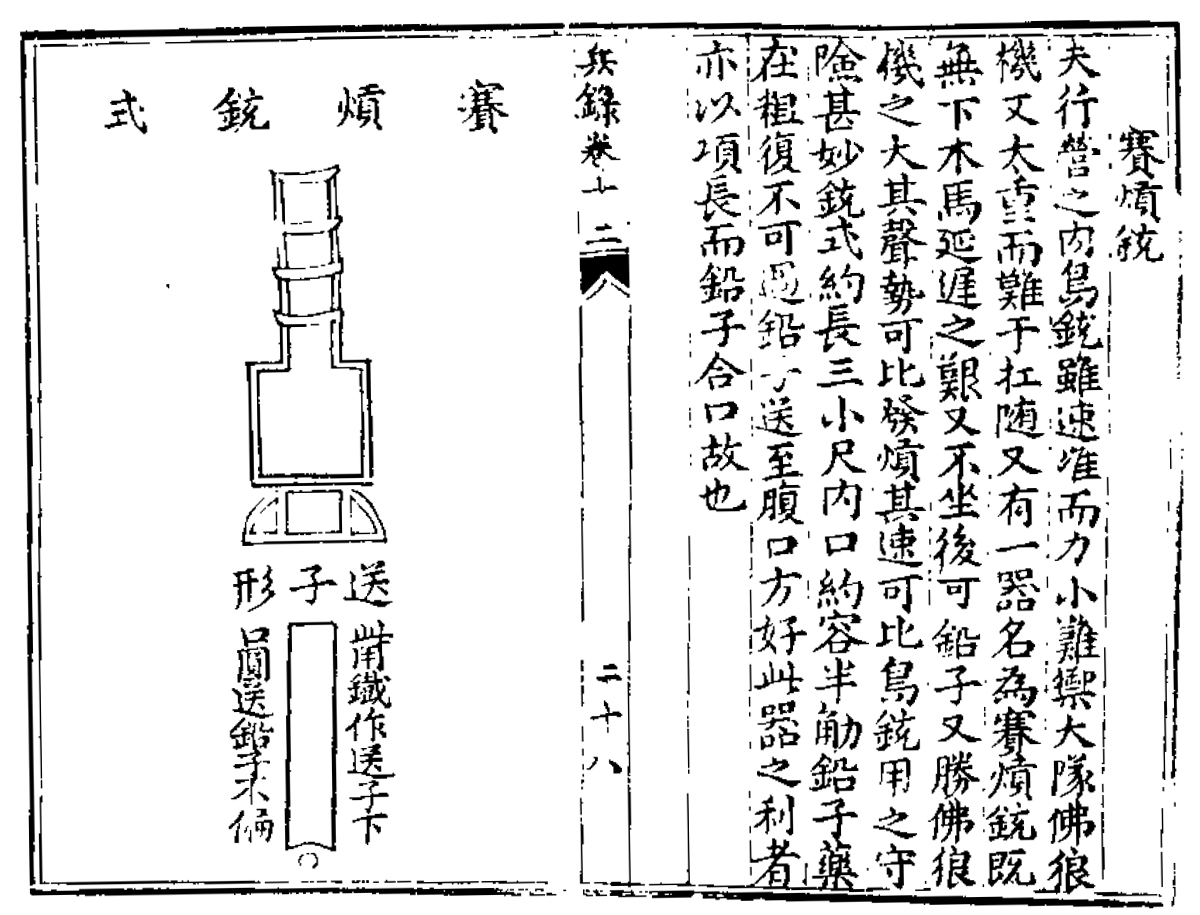 賽熕銃
夫行營之内鳥銃雖速準而力小難禦大隊佛狼
機又太重而難于扛随又有一器名為賽熕銃既
無下木馬延遲之艱又不坐後可鉛子又勝佛狼
機之大其聲勢可比發熕其速可比鳥銃用之守
險甚妙銃式約長三小尺内口約容半觔鉛子藥
在粗復不可過鉛子送至腹口方好此器之利者
亦以項長而鉛子合口故也
兵錄卷十二
二十八
賽熕銃式
送子形
此用鐵作送子下
口圓送鉛子不偏